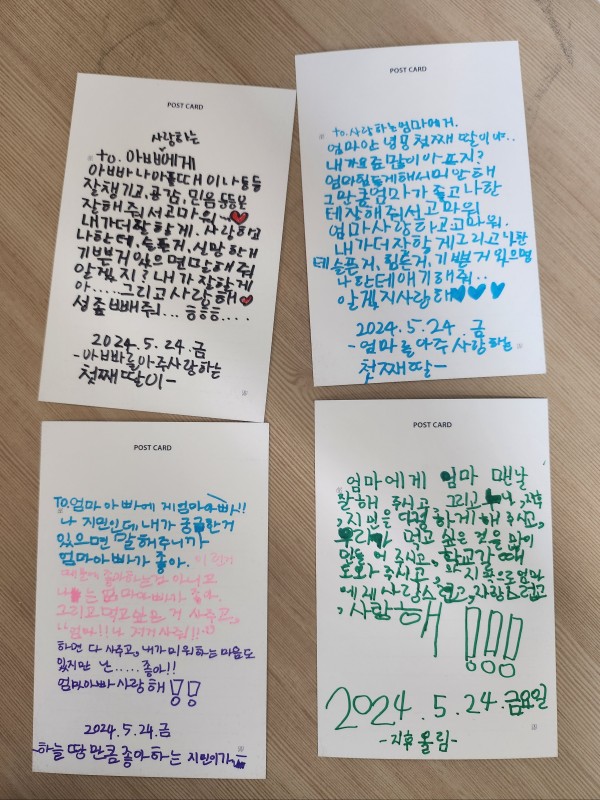 POST CARD
사랑하는
to. 아빠에게
아빠 나 이
잘챙기고, 공감, 믿음 등등을
잘해줘서 고마워
내가 더 잘할게. 사랑하고
나한테, 슬픈거, 신망한거
기쁜거 있으면 말해줘
알겠지? 내가 잘할게
아..... 그리고 사랑해
성 좀 빼줘... 흥흥흥....
2024. 5. 24. 금
-아빠를 아주 사랑하는
첫째 딸이-
POST CARD
to. 사랑하는 엄마에거.
엄마 안녕 첫째 딸이야..
내가 요즘 많이 아프지?
엄마 힘들게해서 미안해
그만큼 엄마가 좋고 나한
테 잘해줘서 고마워
엄마 사랑하고 고마워.
내가 더 잘할게 그리고 나한
테 슬픈거, 힘든거, 기쁜거 있으면
나한테 얘기해줘..
알겠지 사랑해
2024. 5. 24. 금
-엄마를 아주 사랑하는
첫째 딸-
POST CARD
To. 엄마 아빠에게 엄마아빠!!
나 지민인데 내가 궁금한거
있으면 말해주니까
엄마아빠가 좋아. 이런거
때문에 좋아하는건 아니고
나는 엄마아빠가 좋아.
그리고 먹고싶은 거 사주고,
"엄마!! 나 저거 사줘!!"
하면 다 사주고, 내가 미워하는 마음도
있지만 난..... 좋아!!
엄마아빠 사랑해!!
2024. 5. 24. 금
-하늘 땅 만큼 좋아하는 지민이가-
POST CARD
엄마에게 엄마 맨날
잘해 주시고 그리고 나, 지후
, 지민을 다정하게 해 주시고,
우리가 먹고 싶은 것을 많이
만들어 주시고, 학교갈 때
도와 주시고, 지후으로 엄마
에게 사랑스럽고, 자랑스럽고
, 사랑해!!!!
2024. 5. 24. 금요일
-지후 올림-